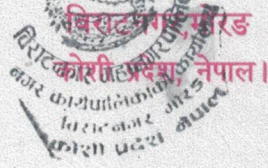 विराटनगर, मोरङ
कोशी प्रदेश, नेपाल।
विराटनगर महानगरपालिका
नगर कार्यपालिकाको कार्यालय
विराटनगर मोरङ
कोशी प्रदेश नेपाल